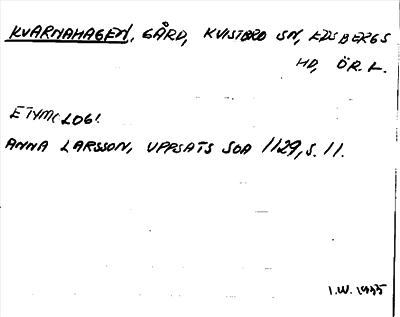 KVARNAHAGEN, GÅRD, KVISTBRO SN, EDSBERGS
HD, ÖR. L.
ETYMOLOGI
ANNA LARSSON, UPPSATS SOA 1129, S. 11.
I.W. 1935